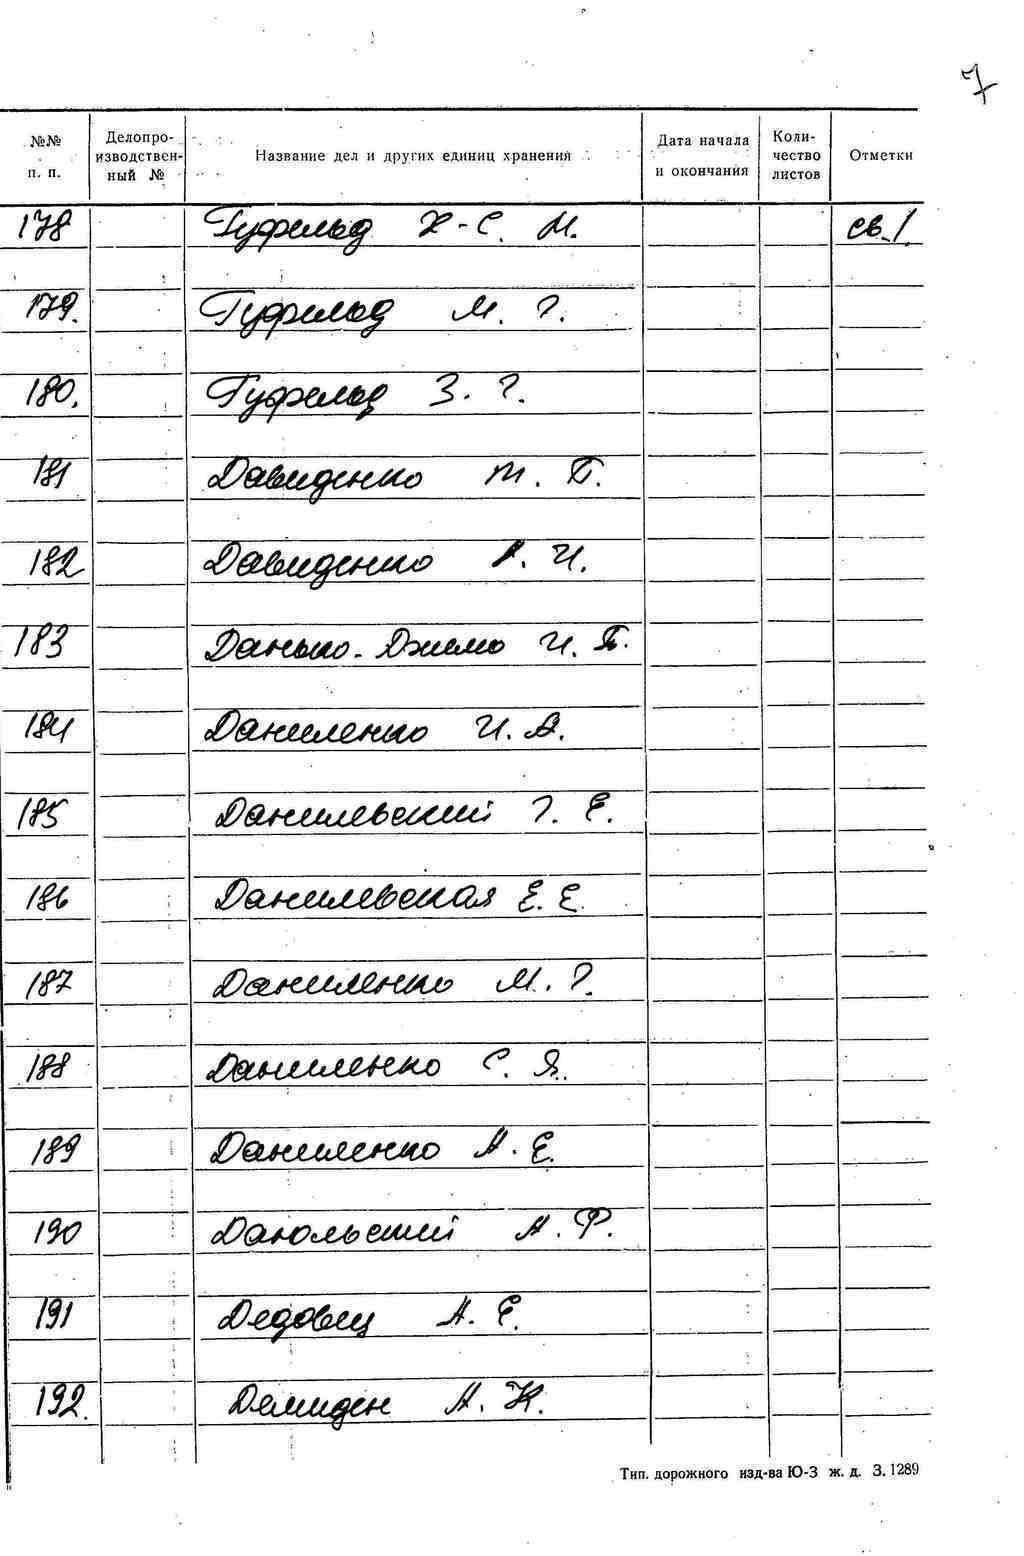 7
№№ п. п. Делопро-изводствен-ный № Название дел и других единиц хранения Дата начала и окончания Коли-чество листов Отметки
178 Гуфельд Х-С. М. св. 1.
179. Гуфельд М. Г.
180. Гуфельд З. Г.
181 Давиденко т. П.
182 Давиденко А. И.
183 Данько-Джимо И. П.
184 Даниленко И. А.
185 Данильский Г. Е.
186 Данилевская Е. Е.
187 Даниленко М. Г.
188 Даниленко С. Я.
189 Даниленко А. Е.
190 Даюльский А. Ф.
191 Дедовец А. Е.
192. Демиден А. К.
Тип. дорожного изд-ва Ю-З ж. д. З. 1289